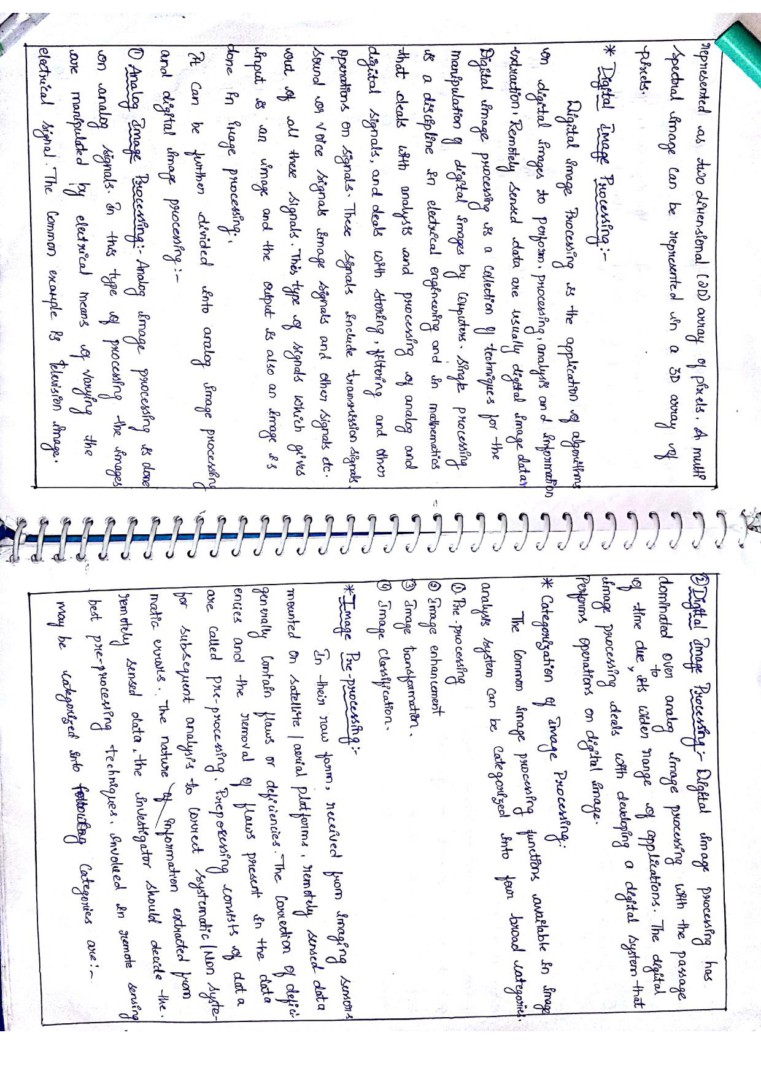 represented as two dimensional (2D) array of pixels. A multi
spectral image can be represented in a 3D array of
pixels.
* Digital Image Processing:-
Digital image Processing is the application of algorithms
on digital images to perform, processing, analysis and information
extraction. Remotely sensed data are usually digital image data.
Digital image processing is a collection of techniques for the
manipulation of digital images by computers. Single processing
is a discipline in electrical engineering and in mathematics
that deals with analysis and processing of analog and
digital signals, and deals with storing, filtering and other
operations on signals. These signals include transmission signals,
sound or voice signals image signals and other signals etc.
out of all these signals. This type of signals which gives
input is an image and the output is also an image is
done in image processing.
It can be further divided into analog image processing
and digital image processing:-
① Analog Image Processing:- Analog image processing is done
on analog signals. In this type of processing the images
are manipulated by electrical means or varying the
electrical signal. The common example is television image.
② Digital Image Processing:- Digital image processing has
dominated over analog image processing with the passage
of time due to its wider range of applications. The digital
image processing deals with developing a digital system that
Performs operations on digital image.
* Categorization of Image Processing:
The Common image processing functions available in image
analysis system can be categorized into four broad categories.
① Pre-processing
② Image enhancement
③ Image transformation.
④ Image classification.
* Image Pre-processing:-
In their raw form, received from imaging sensors
mounted on satellite / aerial platforms, remotely sensed data
generally contain flaws or deficiencies. The correction of defici
encies and the removal of flaws present in the data
are called pre-processing. Preprocessing consists of data
for subsequent analysis to correct systematic / Non syste-
matic errors. The nature of information extracted from
remotely sensed data, the investigator should decide the.
best pre-processing techniques. involved in remote sensing
may be categorized into Categories are:-